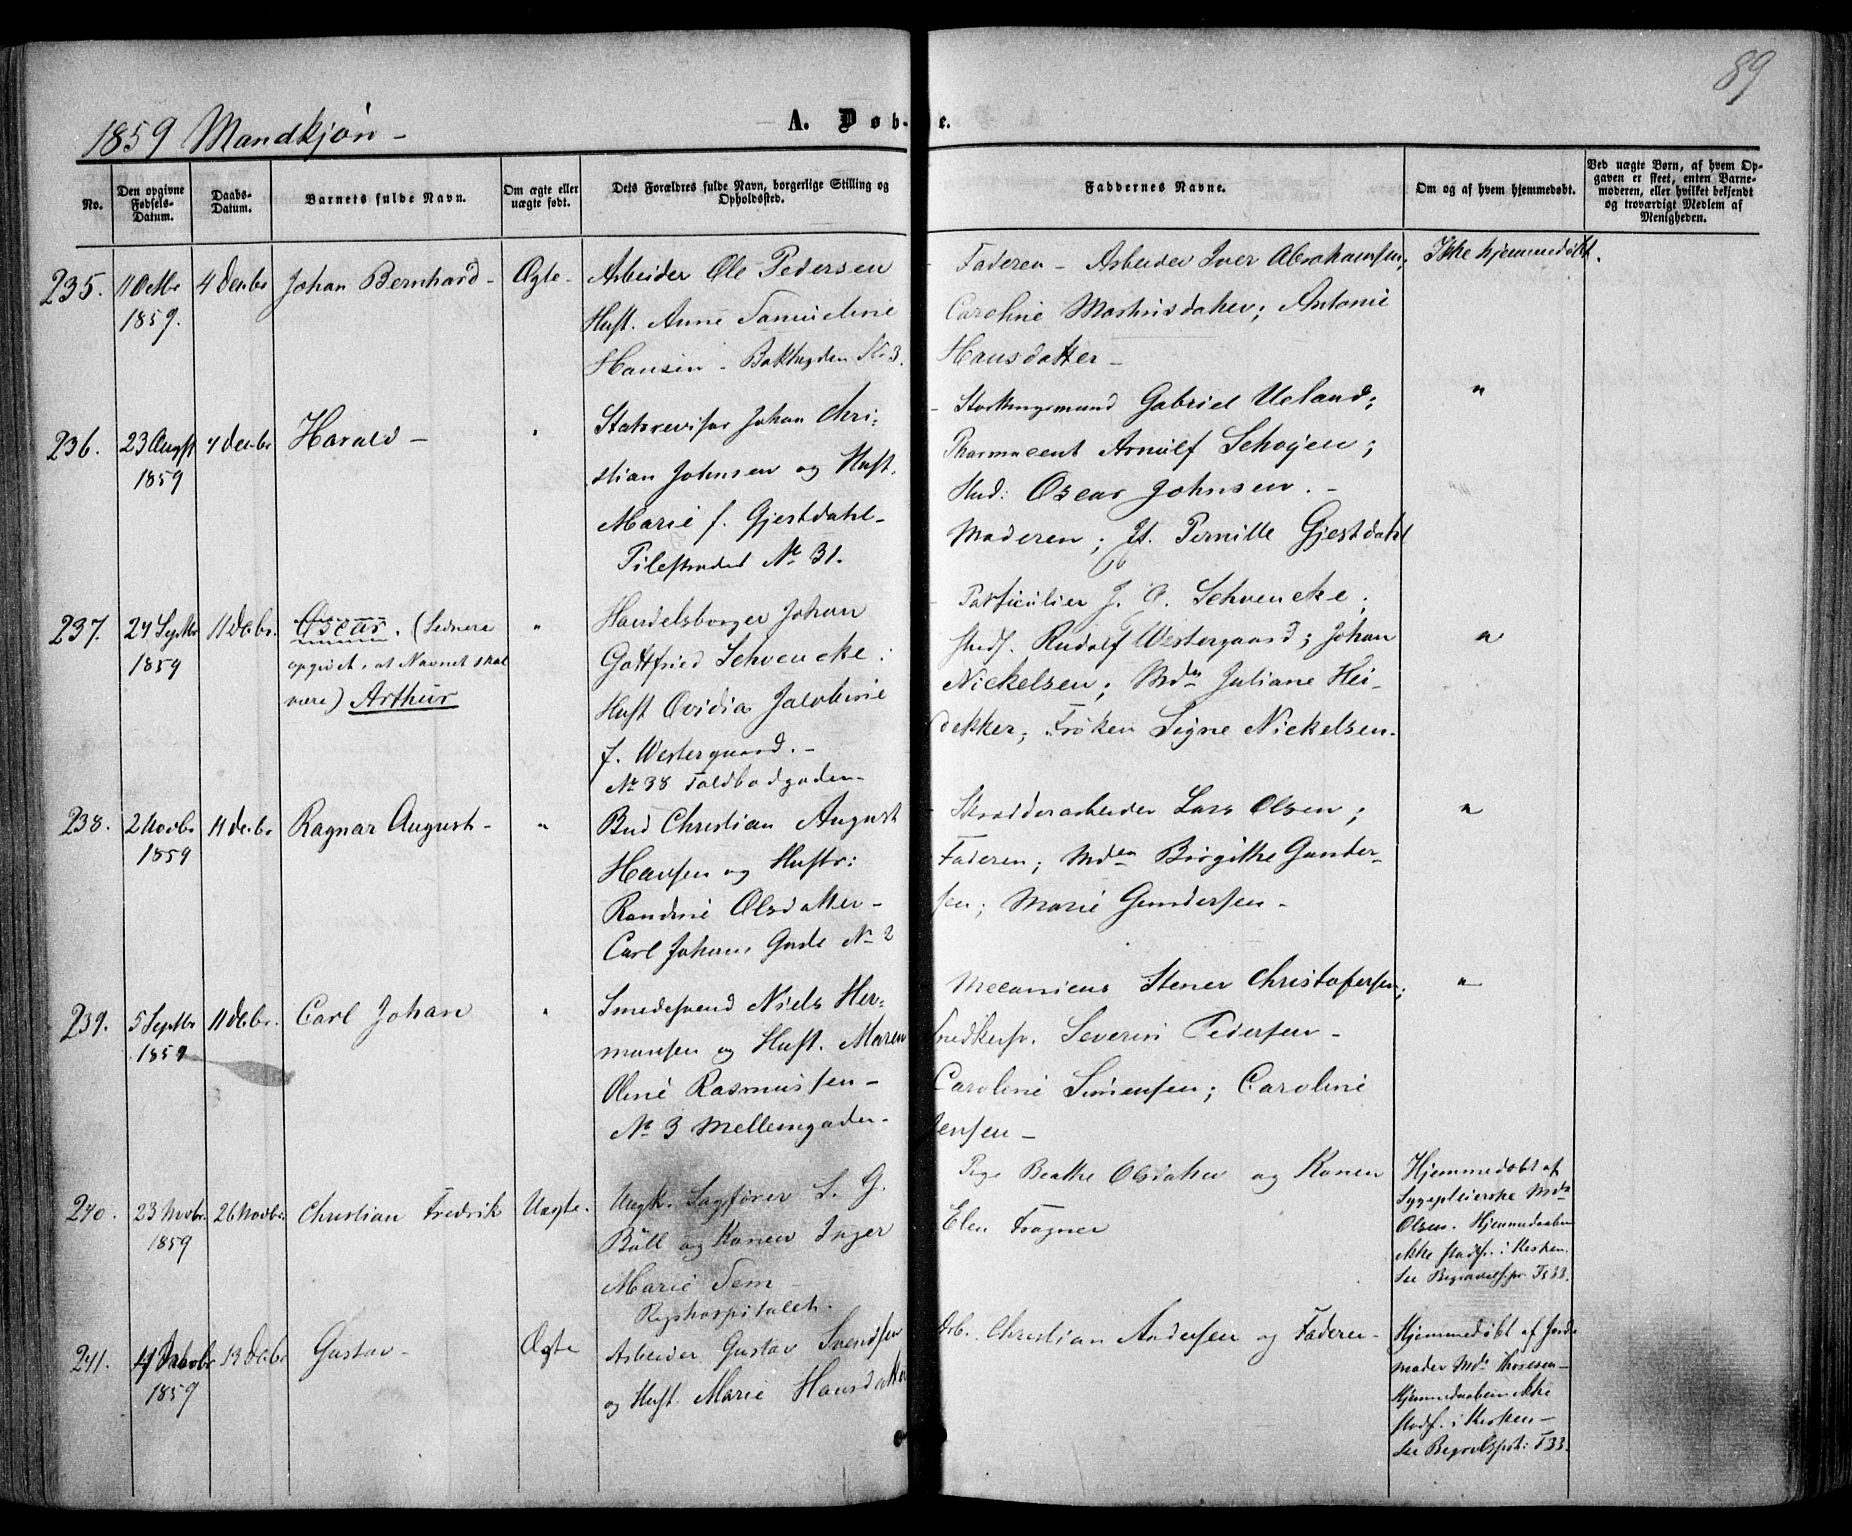 89
1859 Mandkjøn -
A. Døbte.
No.
Den opgivne Fødsels-Datum.
Daabs-Datum.
Barnets fulde Navn.
Om ægte eller uægte født.
Dets Forældres fulde Navn, borgerlige Stilling og Opholdssted.
Faddernes Navne.
Om og af hvem hjemmedøbt.
Ved uægte Børn, af hvem Opgaven er skeet, enten Barnemoderen, eller hvilket bekjendt og troværdigt Medlem af Menigheden.
235. 11 Octbr 4 Decbr Johan Bernhard - Ægte -
1859.
Arbeider Ole Pedersen
Hust. Anne
Hansen - No 3.
Faderen - Arbeider Iver Abrahamsen;
Caroline ; Antonie
Hansdatter -
Ikke hjemmedøbt.
236. 23 Augst 4 Decbr Harald - "
1859
Statsrevisor Johan Chri-
stian Johnsen og Hust.
Marie f. Gjestdahl -
Pilestrædet No 31.
Storthingsmand Gabriel Ueland;
Pharmaceut Arnulf Schøyen;
Stud: Oscar Johnsen. -
Moderen; Pernille Gjestdahl
"
237. 24 Septbr 11 Decbr. Oscar. (Sednere "
1859 opgivet, at Navnet skal
være) Arthur
Handelsborger Johan
Gottfried Schvencke;
Hust Ovidia Jacobine
f. Westergaard. -
No 38 Toldbodgaden -
Particulier J. C. Schvencke;
Stud. Rudolf Westergaard; Johan
Nickelsen; Mdm Juliane Hei-
dekker; Frøken Signe Nickelsen.
"
238. 2 Novbr 11 Decbr Ragnar August - "
1859
Bud Christian August
Hansen og Hustr:
Randine Olsdatter -
Carl Johans Gade No 2
Skrædderarbeider Lars Olsen;
Faderen; Mdm Birgithe Gunder-
sen; Marie Gundersen -
"
239. 5 Septbr 11 Decbr. Carl Johan "
1859
Smedesvend Niels Her-
mansen og Hust. Maren
Oline Rasmussen -
No 3 Mellemgaden -
Mecanicus Stener Christofersen;
Snedkersv. Severin Pedersen -
Caroline Simensen; Caroline
Jensen -
"
240. 23 Novbr. 26 Novbr. Christian Fredrik Uægte.
1859
Ungk. Sagfører L. G.
Bull og Konen Inger
Marie Sem
Rigshospitalet.
Pige Beathe Olsdatter og Konen
Elen Fragner
Hjemmedøbt af
Sygepleierske Mdm
Olsen. Hjemmedaaben
ikke stadf. i Kirken.
See Begravelsspr. F. 33.
241. 4 Novbr 13 Decbr Gustav - Ægte
1859
Arbeider Gustav Svendsen
og Hust. Marie Hansdatter
Arb. Christian Andersen og Faderen -
Hjemmedøbt af Jorde
moder Mdm Thoresen -
Hjemmedaaben ikke
stadf. i Kirken -
See Begravelsspr: F 33.